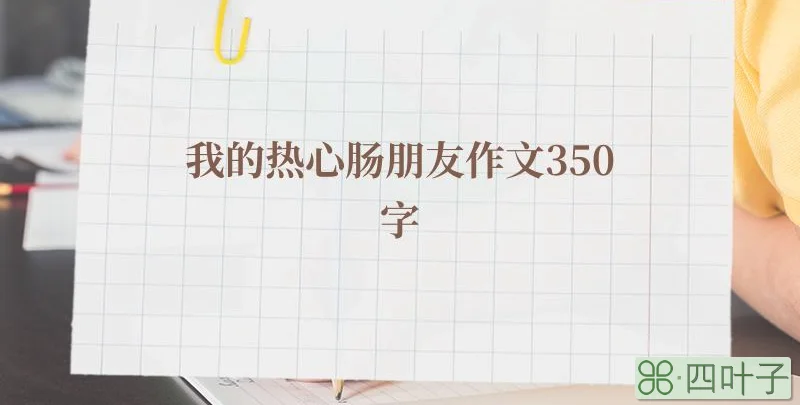 我的热心肠朋友作文350
字
四叶子